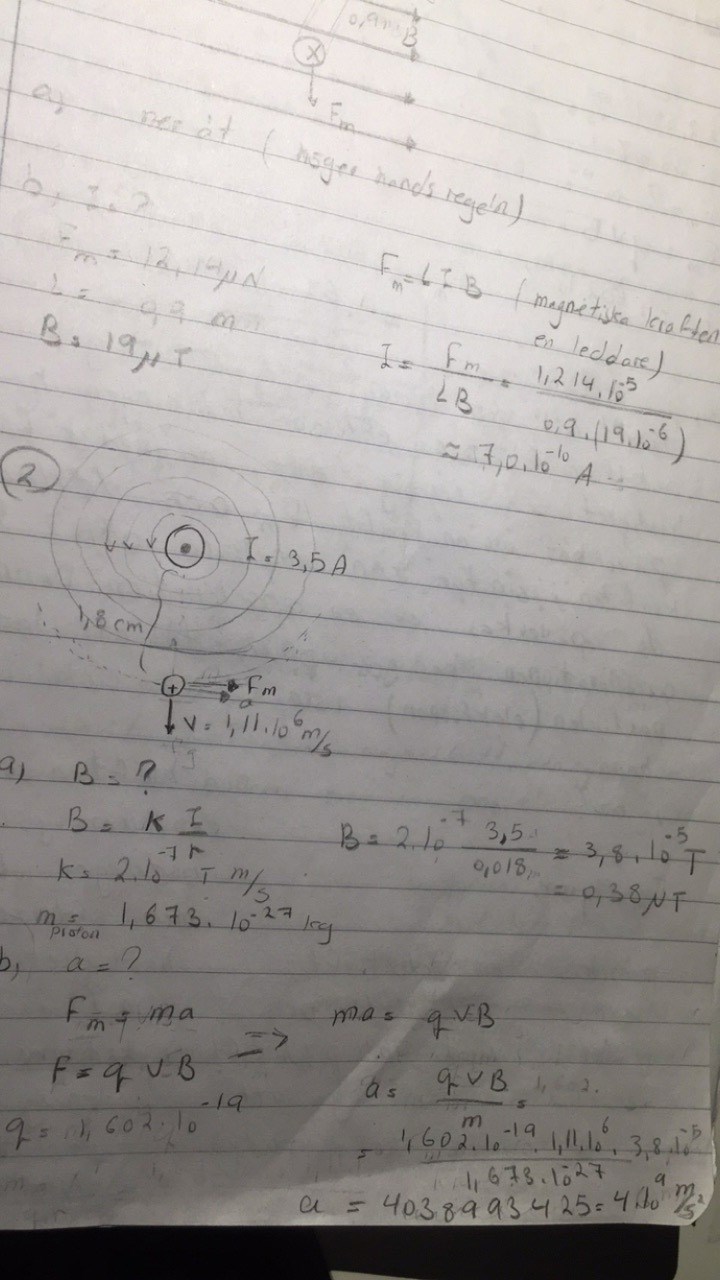 0,9 m
B
X
Fm
a) neråt (höger hands regeln)
b, I = ?
Fm = 12,14 μN
L = 0,9 m
B = 19 μT
Fm = L I B (magnetiska kraften
en leddare)
I = Fm / LB = 1,214·10⁻⁵ / 0,9·(19·10⁻⁶)
≈ 7,0·10⁻¹⁰ A
2
I = 3,5 A
1,8 cm
+ Fm
a
V = 1,11·10⁶ m/s
a) B = ?
B = K I/r
K = 2·10⁻⁷ T m/s
B = 2·10⁻⁷ 3,5 / 0,018 = 3,8·10⁻⁵ T
= 0,38 μT
m proton = 1,673·10⁻²⁷ kg
b, a = ?
Fm = ma
F = q v B
=> ma = q v B
q = 1,602·10⁻¹⁹
a = q v B / m =
= 1,602·10⁻¹⁹ · 1,11·10⁶ · 3,8·10⁻⁵ / 1,673·10⁻²⁷
a = 4038993425 = 4·10⁹ m/s²